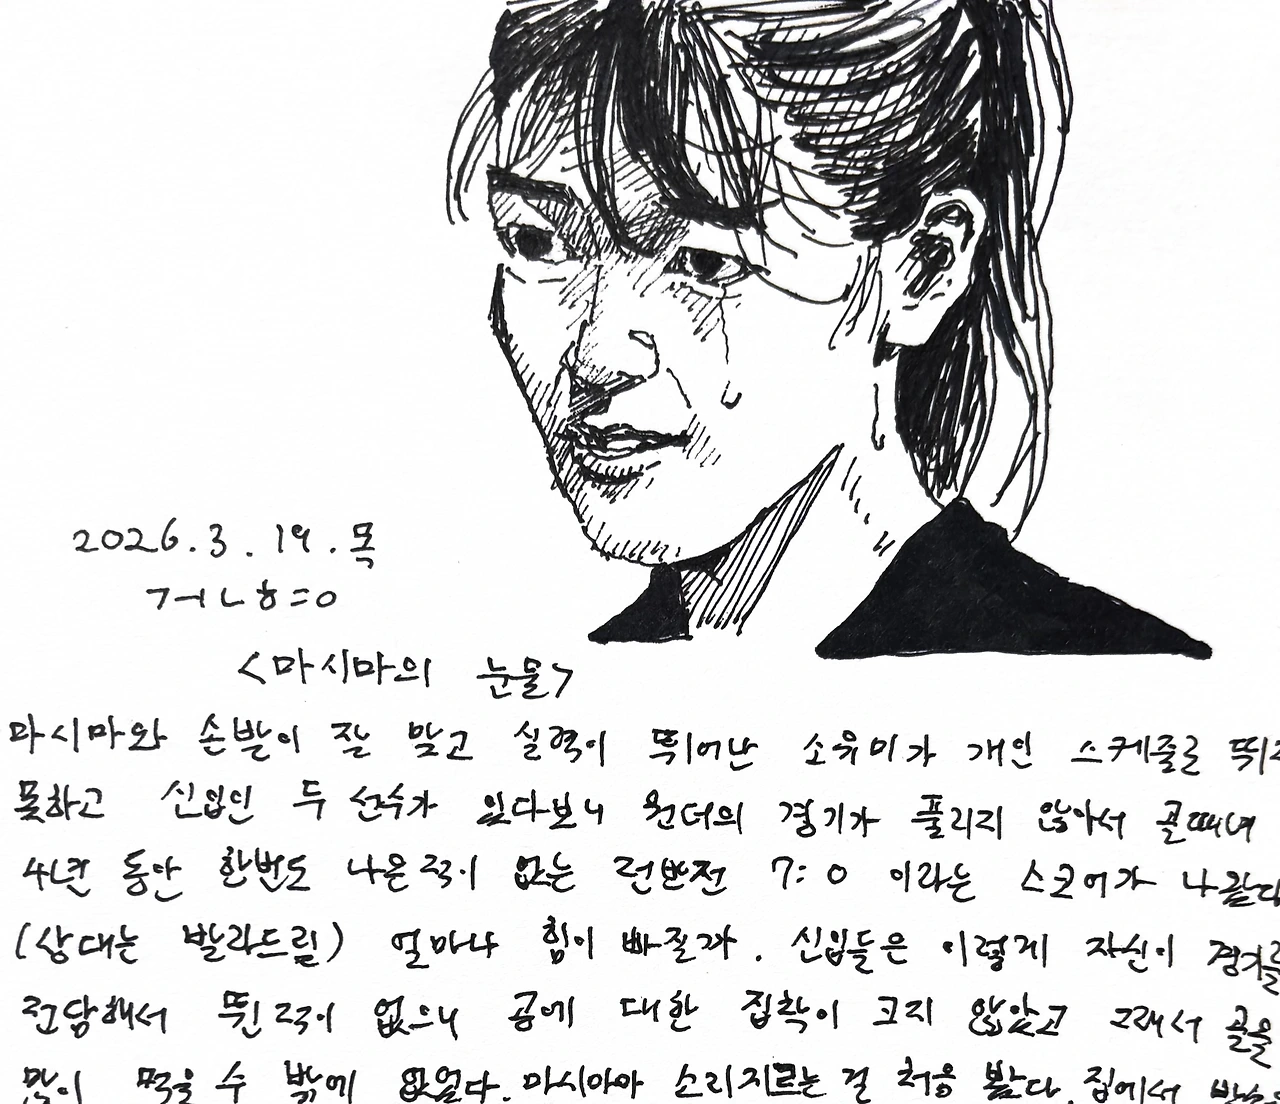 2026.3.19.목
ㄱㅓㄴㅎ=0
<마시마의 눈물>
마시마와 손발이 잘 맞고 실력이 뛰어난 소유미가 개인 스케줄로 뛰지
못하고 신입인 두 선수가 있다보니 원더의 경기가 풀리지 않아서 골때녀
4년 동안 한번도 나온 적이 없는 전반전 7:0 이라는 스코어가 나왔다
(상대는 발라드림) 얼마나 힘이 빠질까. 신입들은 이렇게 자신이 경기를
전담해서 뛴 적이 없으니 공에 대한 집착이 크지 않았고 그래서 골을
많이 먹을 수 밖에 없었다. 마시마가 소리지르는걸 처음 봤다. 집에서